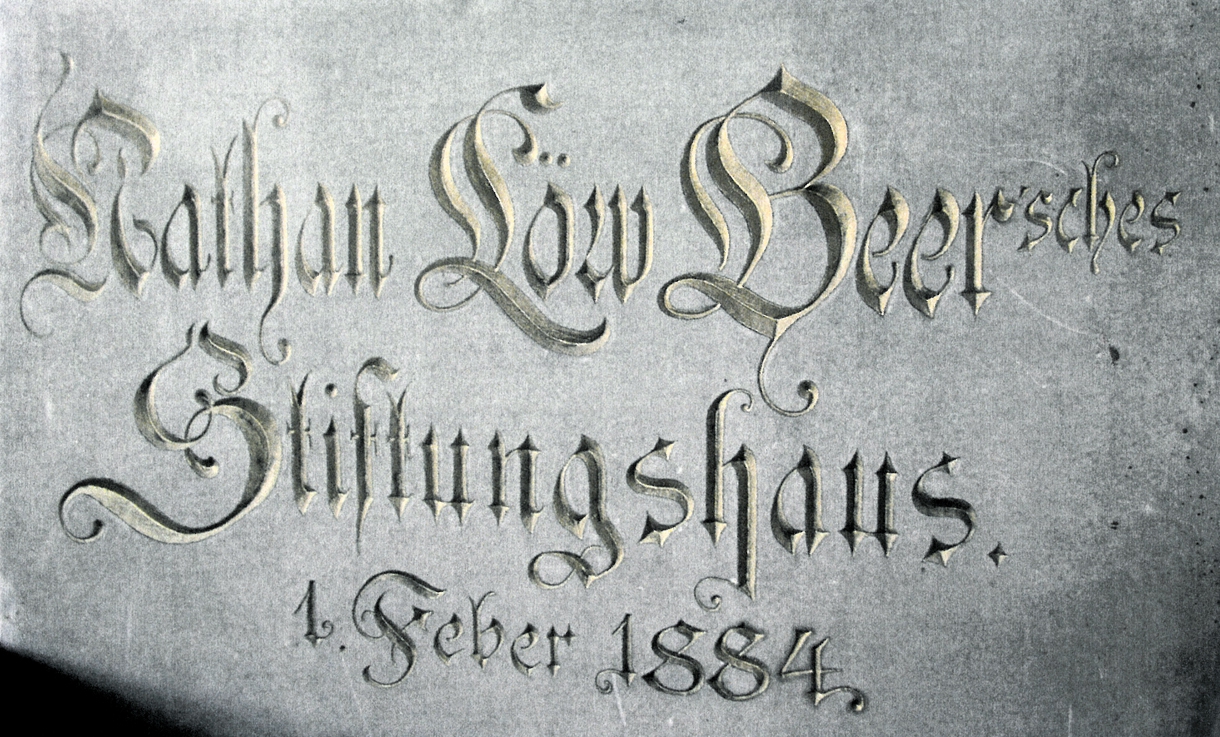 Nathan Löw Beer'sches
Stiftungshaus.
1. Feber 1884